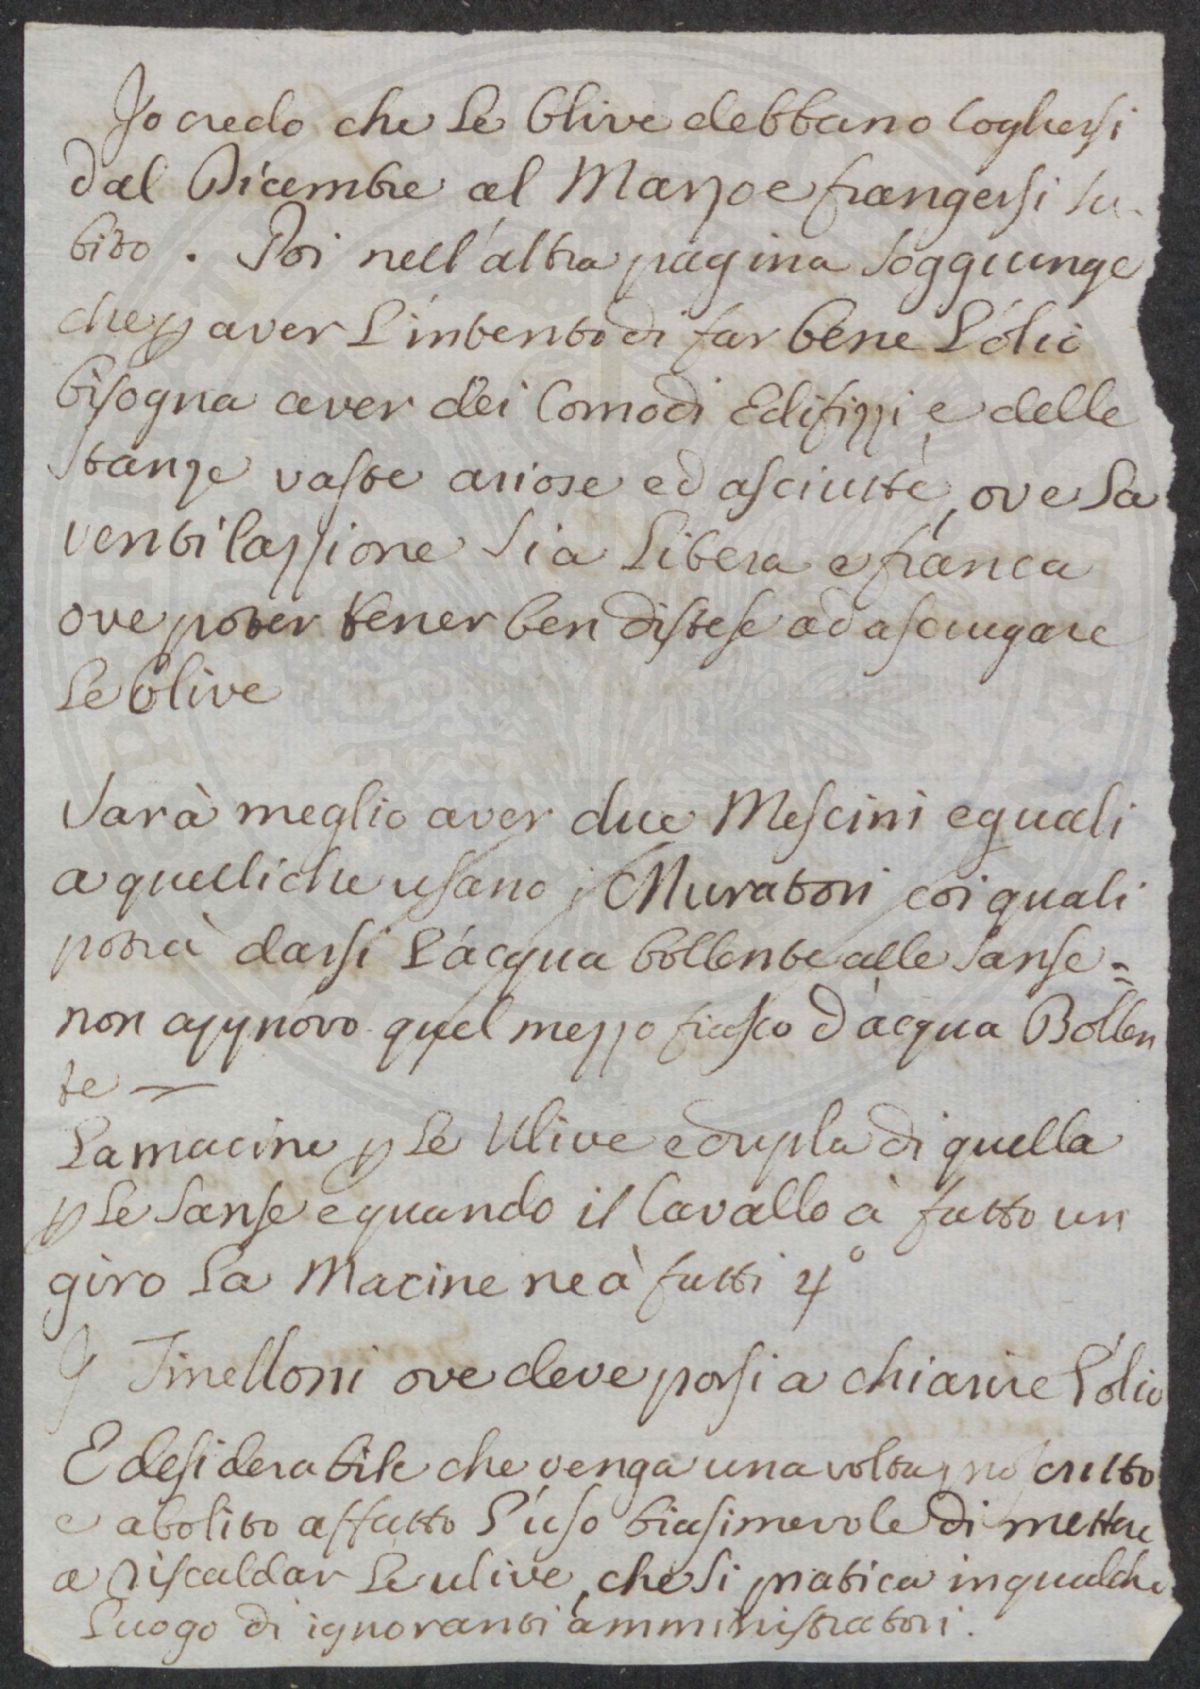 Io credo che le Olive debbano Cogliersi
dal Dicembre al Marzo e frangersi su-
bito. Poi nell'altra pagina soggiunge
che p aver l'intento di far bene l'olio
bisogna aver dei Comodi Edifizzi e delle
stanze vaste ariose ed asciutte, ove la
ventilazzione sia libera e franca
ove poter tener ben distese ad asciugare
le Olive
Sarà meglio aver due Mescini eguali
a quelli che usano i Muratori coi quali
potrà darsi l'acqua bollente alle sanse =
non approvo quel mezzo fiasco d'acqua Bollen
te —
La macine p le Ulive e dupla di quella
p le sanse e quando il Cavallo à fatto un
giro la Macine ne à fatti 4°
I Tinelloni ove deve porsi a chiarire l'olio
E desiderabile che venga una volta proscritto
e abolito affatto l'uso biasimevole di mettere
a riscaldar le ulive, che si pratica in qualche
luogo di ignoranti amministratori.